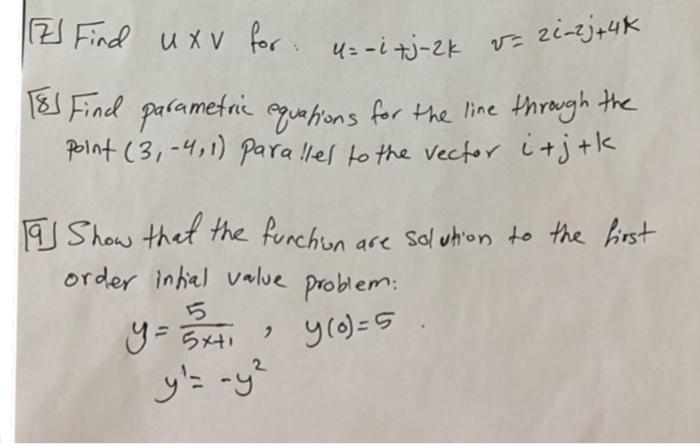 [7] Find u x v for: u=-i+j-2k v= 2i-2j+4k
[8] Find parametric equations for the line through the
point (3,-4,1) parallel to the vector i+j+k
[9] Show that the function are solution to the first
order intial value problem:
y = 5/(5x+1) , y(0)=5 .
y' = -y²